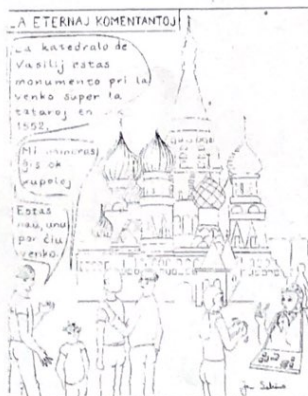 _A ETERNAJ KOMENTANTOJ
La katedralo de
Vasilij estas
monumento pri la
venko super la
tataroj en
1552.
Mi
ĝis ok
kupoloj
Estas
naŭ, unu
por ĉiu
venko.